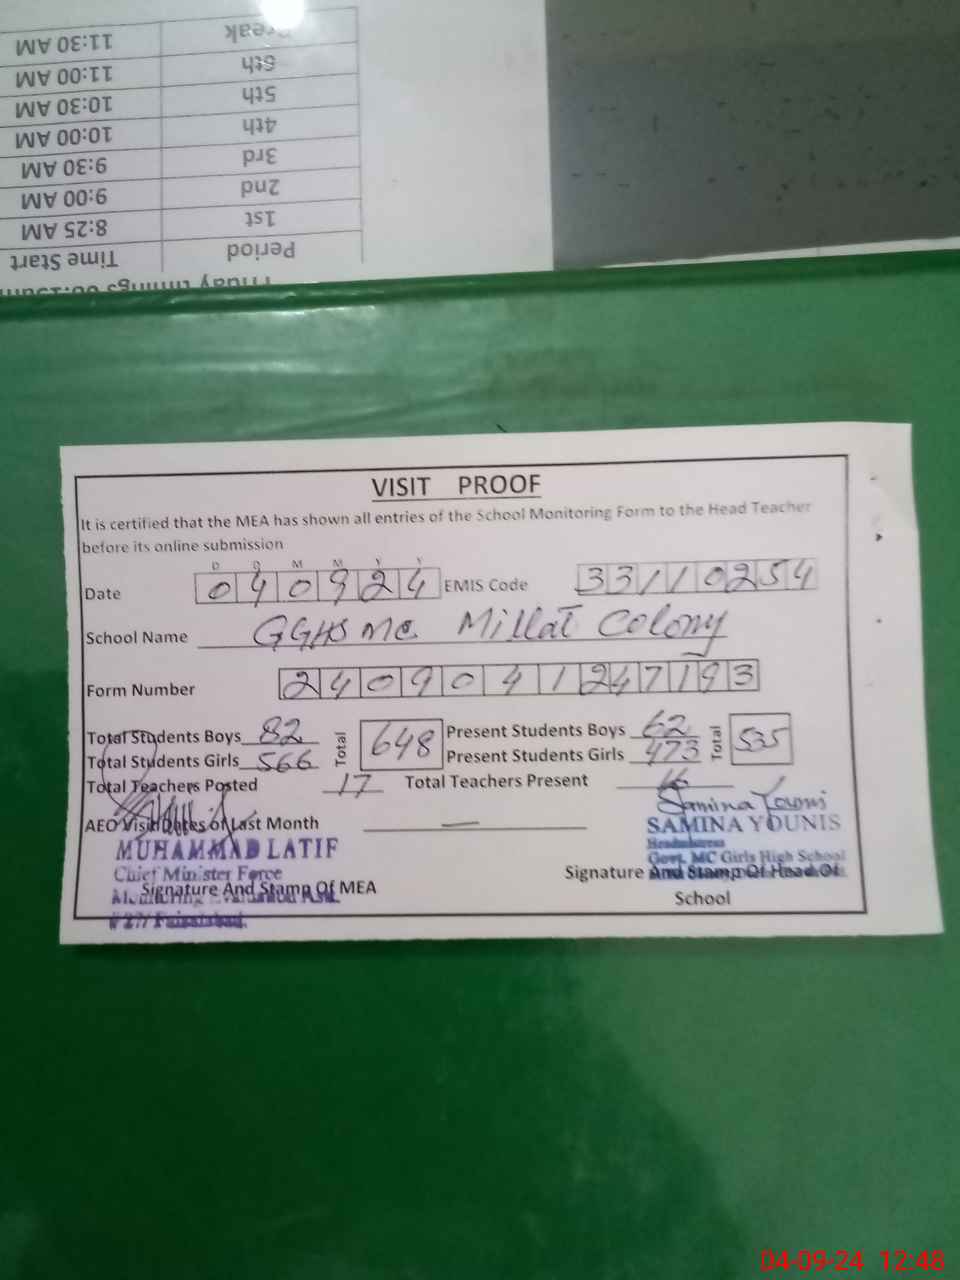 Break 11:30 AM
6th 11:00 AM
5th 10:30 AM
4th 10:00 AM
3rd 9:30 AM
2nd 9:00 AM
1st 8:25 AM
Period Time Start
Friday timings
VISIT PROOF
It is certified that the MEA has shown all entries of the School Monitoring Form to the Head Teacher
before its online submission
D D M M Y Y
Date 040924 EMIS Code 33110254
School Name GGHS MC Millat Colony
Form Number 2409041247193
Total Students Boys 82 Total 648 Present Students Boys 62 Total 535
Total Students Girls 566 Present Students Girls 473
Total Teachers Posted 17 Total Teachers Present 16
Samina Younis
AEO Visit Dates of Last Month — SAMINA YOUNIS
MUHAMMAD LATIF Headmistress
Chief Minister Force Govt. MC Girls High School
Signature And Stamp Of MEA Signature And Stamp Of Head Of
School
Faisalabad.
04-09-24 12:48